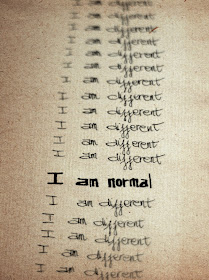 am different
I am different
I am different
I am different
I am different
I am different
I am different
I am different
I am different
I am different
I am different
I am different
I am normal
I am different
I am different
I am different
I am different
I am different